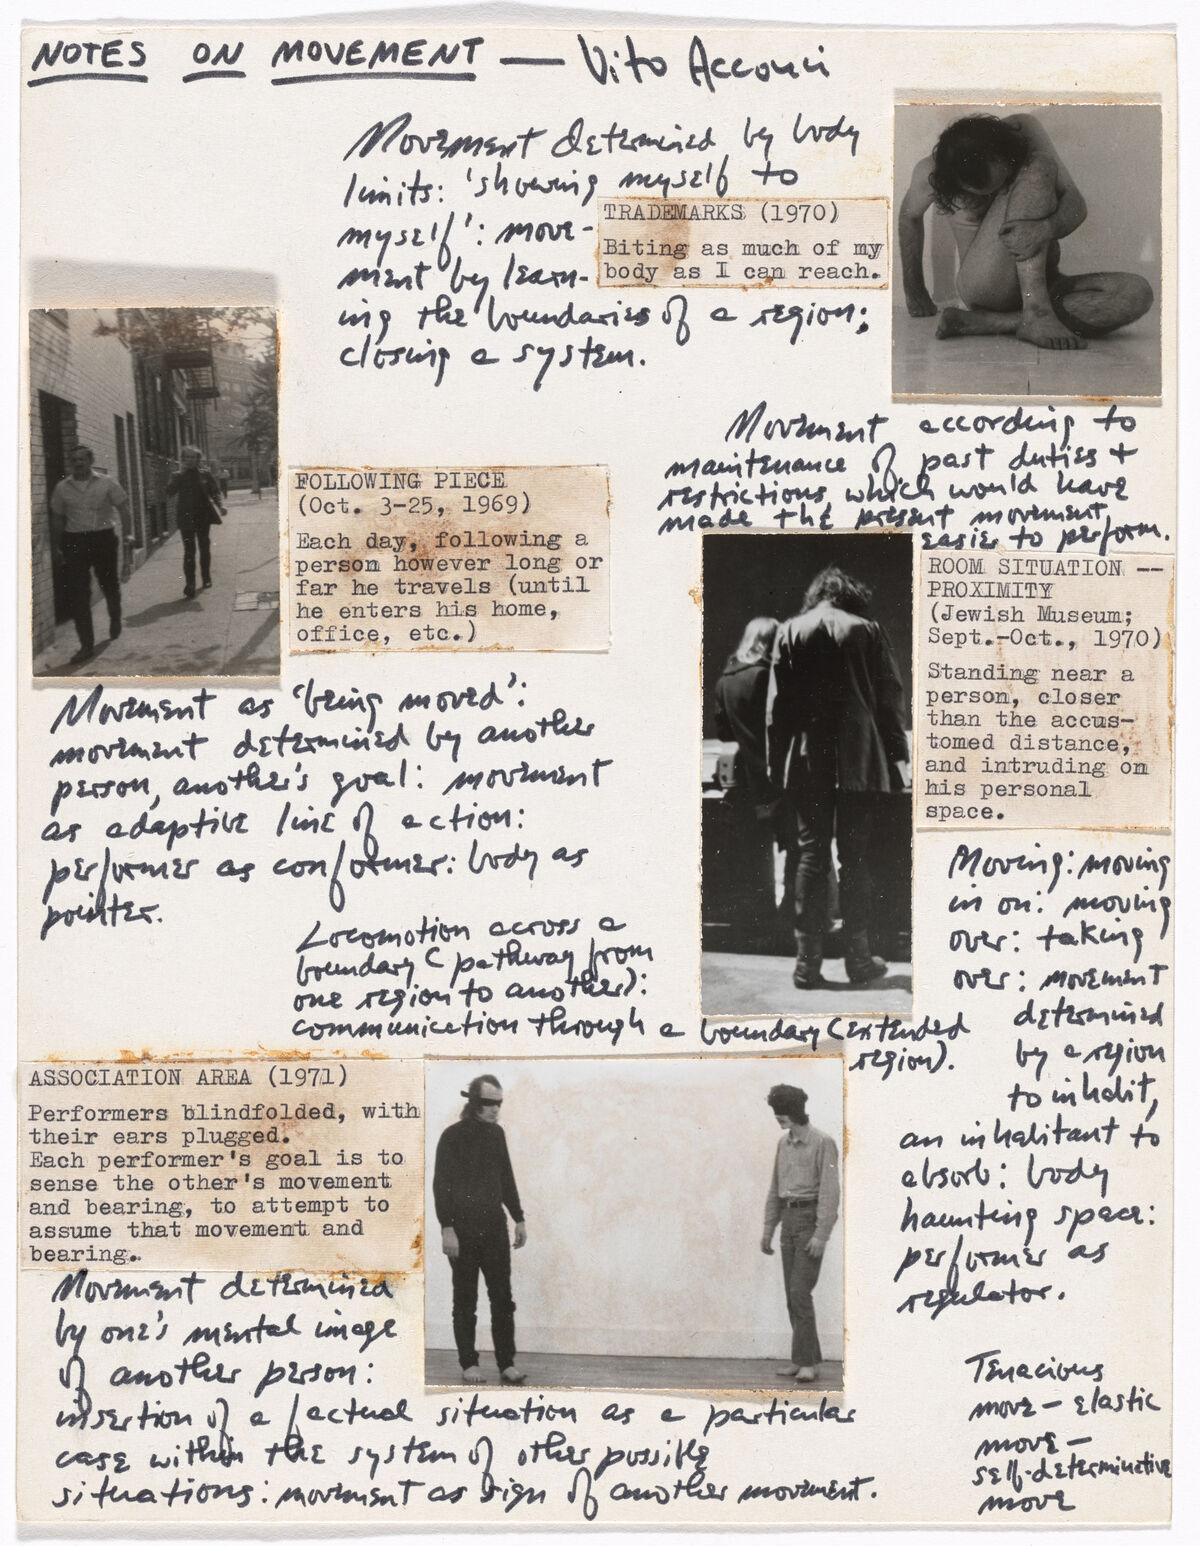 NOTES ON MOVEMENT — Vito Acconci
Movement determined by body
limits: 'showing myself to
myself': move-
ment by learn-
ing the boundaries of a region;
closing a system.
TRADEMARKS (1970)
Biting as much of my
body as I can reach.
Movement according to
maintenance of past duties +
restrictions, which would have
made the present movement
easier to perform.
FOLLOWING PIECE
(Oct. 3-25, 1969)
Each day, following a
person however long or
far he travels (until
he enters his home,
office, etc.)
ROOM SITUATION --
PROXIMITY
(Jewish Museum;
Sept.-Oct., 1970)
Standing near a
person, closer
than the accus-
tomed distance,
and intruding on
his personal
space.
Movement as 'being moved':
movement determined by another
person, another's goal: movement
as adaptive line of action:
performer as conformer: body as
pointer.
Moving: moving
in on: moving
over: taking
over: movement
determined
by a region
to inhabit,
an inhabitant to
absorb: body
haunting space:
performer as
regulator.
Locomotion across a
boundary (pathway from
one region to another):
communication through a boundary (extended
region).
ASSOCIATION AREA (1971)
Performers blindfolded, with
their ears plugged.
Each performer's goal is to
sense the other's movement
and bearing, to attempt to
assume that movement and
bearing.
Movement determined
by one's mental image
of another person:
insertion of a factual situation as a particular
case within the system of other possible
situations: movement as sign of another movement.
Tenacious
move — elastic
move —
self-determinative
move